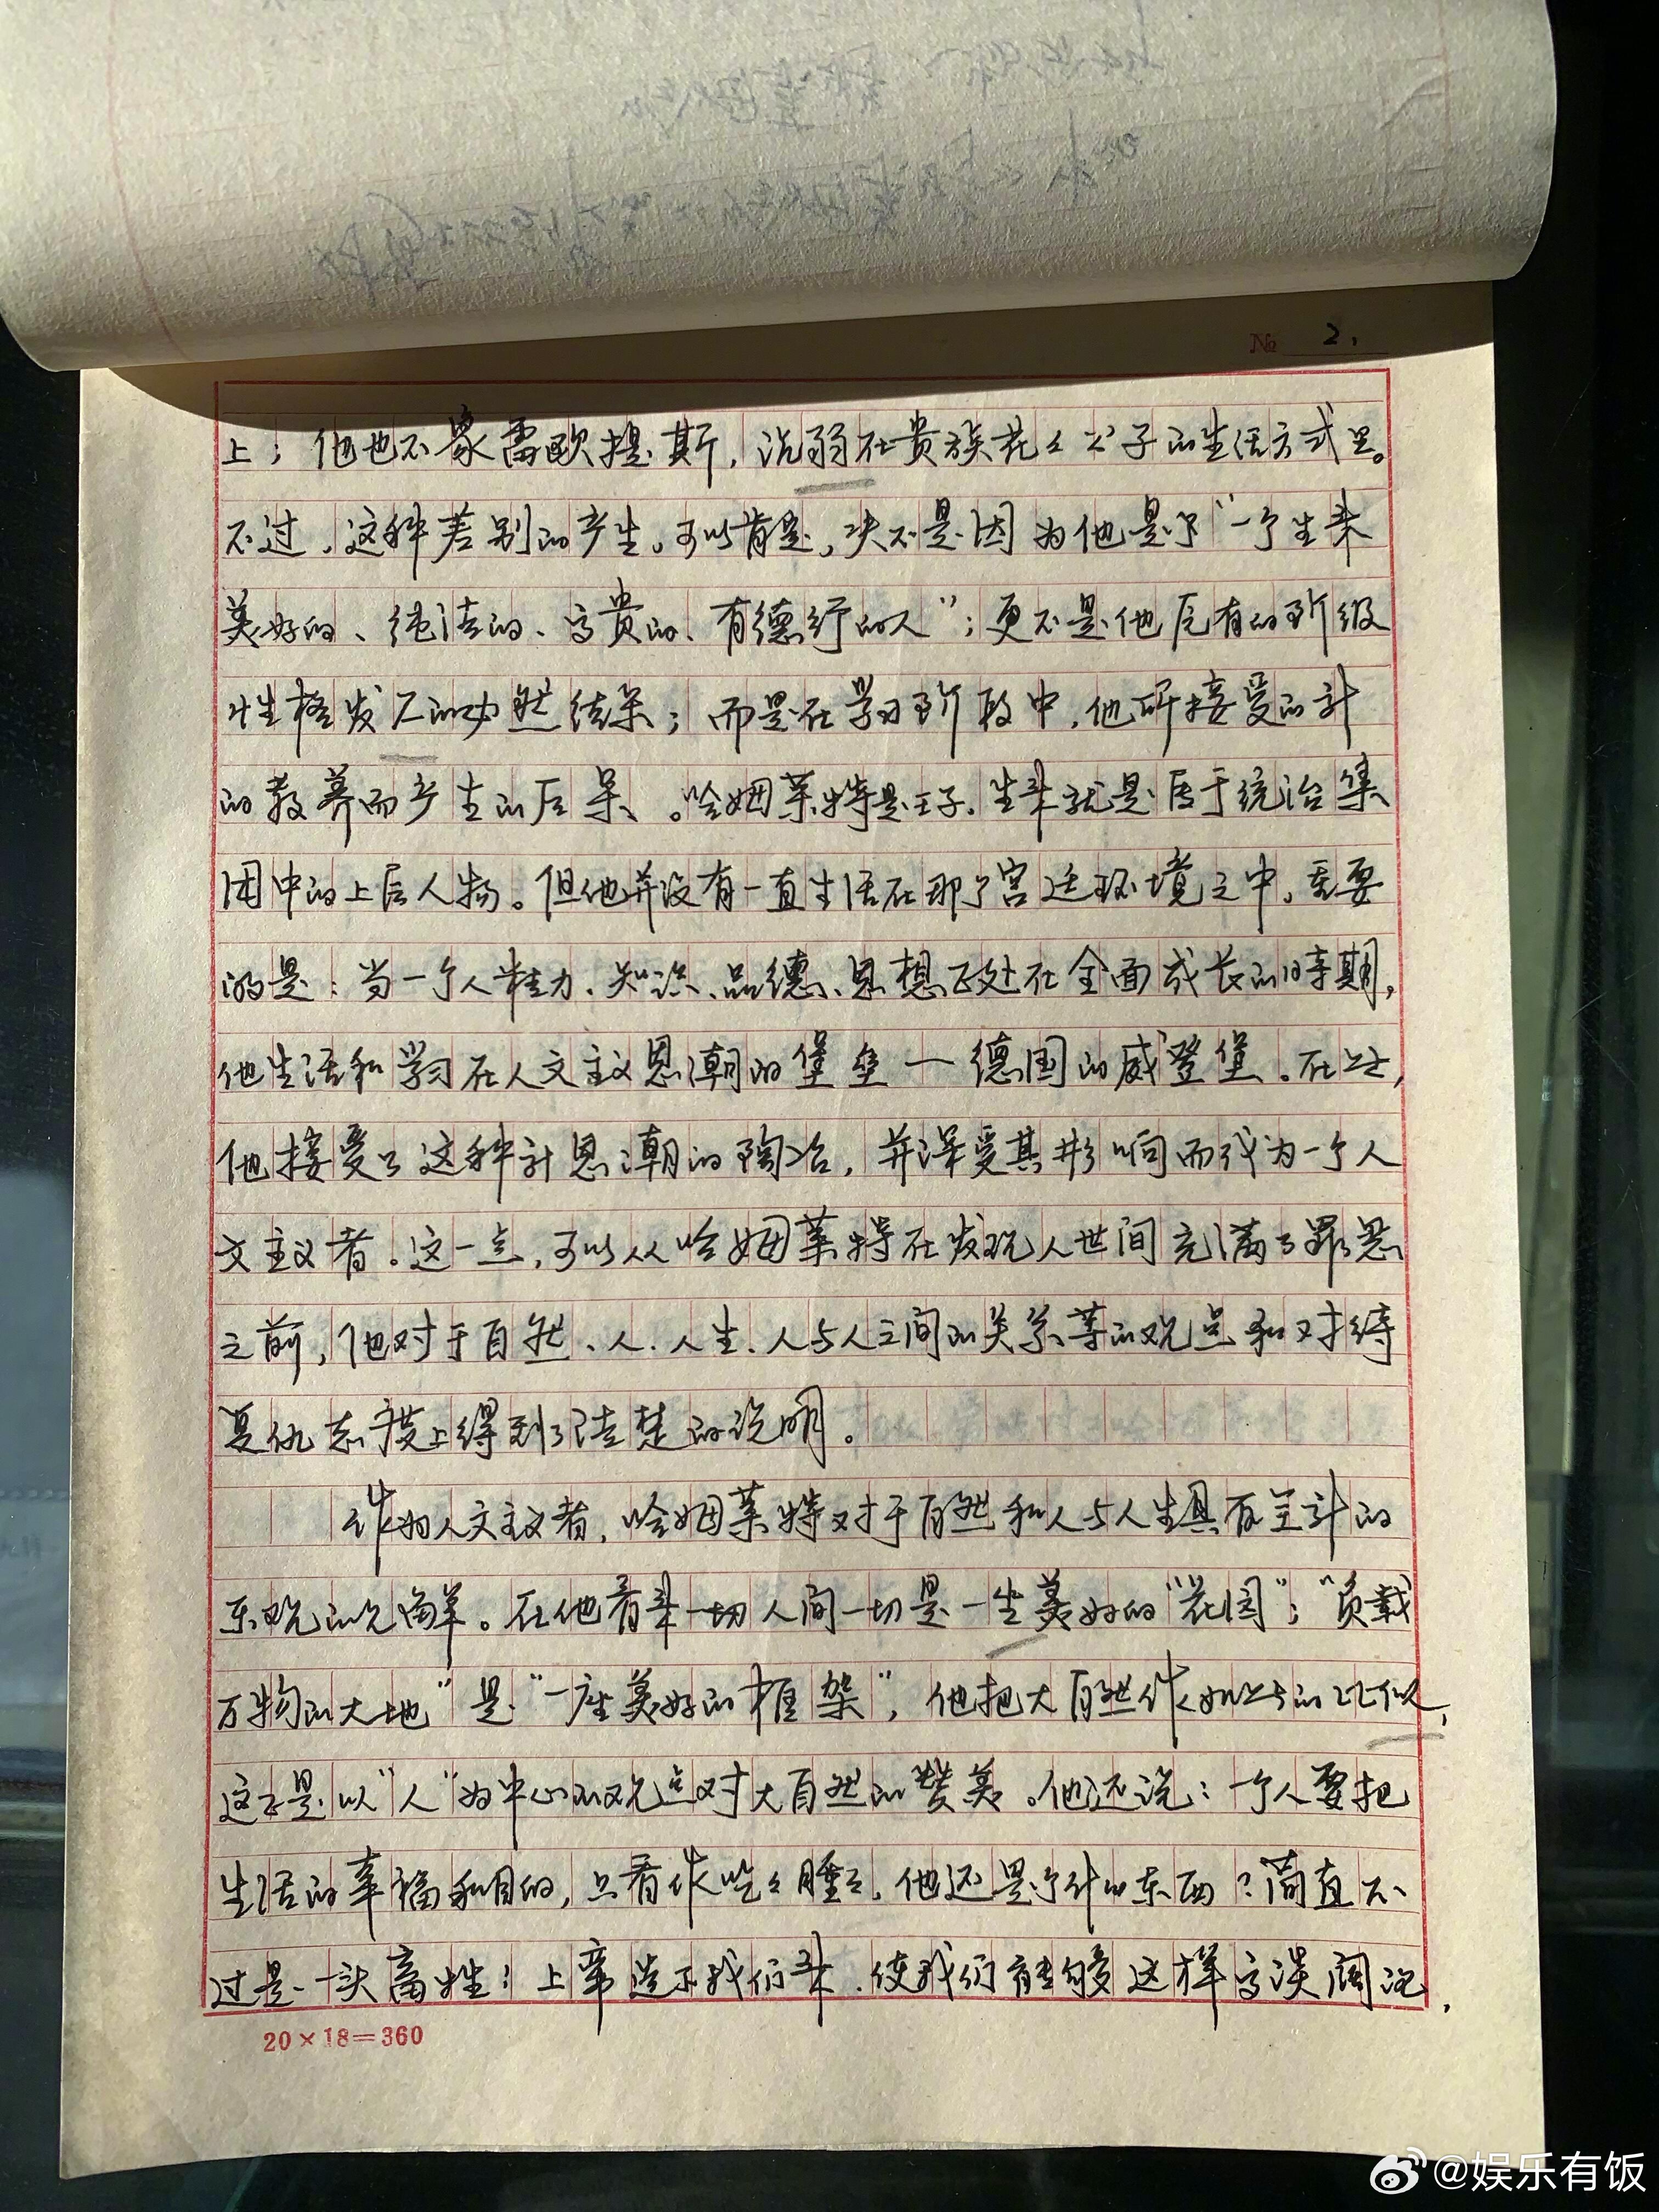 № 2.
上；他也不象雷欧提斯，沉弱在贵族花々公子的生活方式里。
不过，这种差别的产生。可以肯定，决不是因为他是个“一个生来
美好的、纯洁的、高贵的、有德行的人”；更不是他底有的阶级
性格发 的必然结果；而是在学习阶段中，他所接受的
的教养而产生的后果。哈姆莱特是王子，生来就是居于统治集
团中的上层人物。但他并没有一直生活在那个宫廷环境之中，重要
的是：当一个人精力、知识、品德、思想正处在全面成长的时期，
他生活和学习在人文主义思潮的堡垒—德国的威登堡。在这，
他接受了这种 思潮的陶冶，并深受其影响而成为一个人
文主义者。这一点，可以从哈姆莱特在发现人世间充满了罪恶
之前，他对于自然、人、人生、人与人之间的关系等的观点和对待
复仇态度上得到了清楚的说明。
作为人文主义者，哈姆莱特对于自然和人与人生具有 的
乐观的见解。在他看来一切人间一切是一坐美好的“花园”；“负载
万物的大地”是“一座美好的框架”，他把大自然作如此的比似，
这正是以“人”为中心的观点对大自然的赞美。他还说：一个人要把
生活的幸福和目的，只看作吃々睡々，他还是个什么东西？简直不
过是一头畜牲！上帝造下我们来，使我们能够这样高谈阔论，
20×18=360
@娱乐有饭